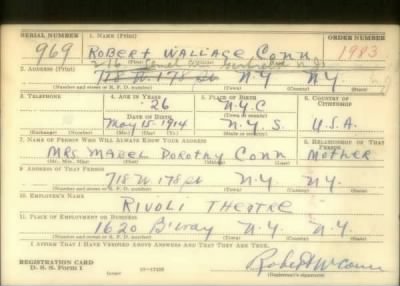 SERIAL NUMBER 1. NAME (Print) ORDER NUMBER
969 ROBERT WALLACE CONN 1983
(First) (Middle) (Last)
216
2. ADDRESS (Print)
718 W. 178 St N.Y. N.Y.
(Number and street or R. F. D. number) (Town) (County) (State)
3. TELEPHONE 4. AGE IN YEARS 5. PLACE OF BIRTH 6. COUNTRY OF CITIZENSHIP
26 N.Y.C
(Town or county)
DATE OF BIRTH
May 15 1914 N.Y.S. U.S.A.
(Exchange) (Number) (Mo.) (Day) (Yr.) (State or country)
7. NAME OF PERSON WHO WILL ALWAYS KNOW YOUR ADDRESS 8. RELATIONSHIP OF THAT PERSON
MRS MABEL DOROTHY CONN MOTHER
(Mr., Mrs., Miss) (First) (Middle) (Last)
9. ADDRESS OF THAT PERSON
718 W. 178 St N.Y. N.Y.
(Number and street or R. F. D. number) (Town) (County) (State)
10. EMPLOYER'S NAME
RIVOLI THEATRE
11. PLACE OF EMPLOYMENT OR BUSINESS
1620 B'way N.Y. N.Y.
(Number and street or R. F. D. number) (Town) (County) (State)
I AFFIRM THAT I HAVE VERIFIED ABOVE ANSWERS AND THAT THEY ARE TRUE.
REGISTRATION CARD
D. S. S. Form 1 Robert W Conn
(Registrant's signature)